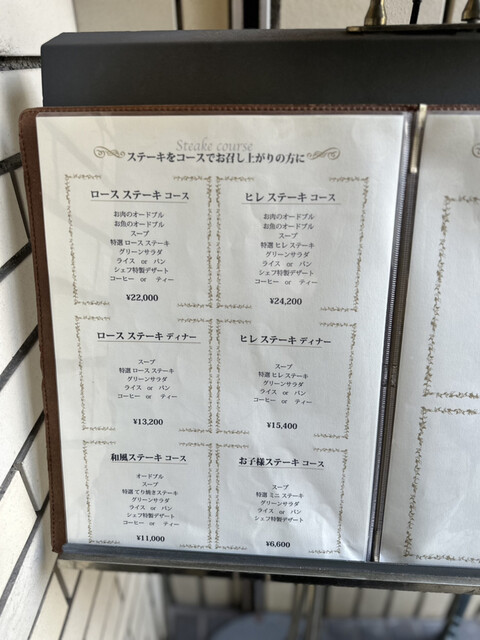 Steake course
ステーキをコースでお召し上がりの方に
ロース ステーキ コース
お肉のオードブル
お魚のオードブル
スープ
特選 ロース ステーキ
グリーンサラダ
ライス or パン
シェフ特製デザート
コーヒー or ティー
¥22,000
ヒレ ステーキ コース
お肉のオードブル
お魚のオードブル
スープ
特選 ヒレ ステーキ
グリーンサラダ
ライス or パン
シェフ特製デザート
コーヒー or ティー
¥24,200
ロース ステーキ ディナー
スープ
特選 ロース ステーキ
グリーンサラダ
ライス or パン
コーヒー or ティー
¥13,200
ヒレ ステーキ ディナー
スープ
特選 ヒレ ステーキ
グリーンサラダ
ライス or パン
コーヒー or ティー
¥15,400
和風ステーキ コース
オードブル
スープ
特選 てり焼き ステーキ
グリーンサラダ
ライス or パン
シェフ特製デザート
コーヒー or ティー
¥11,000
お子様ステーキ コース
スープ
特選 ミニ ステーキ
グリーンサラダ
ライス or パン
シェフ特製デザート
¥6,600